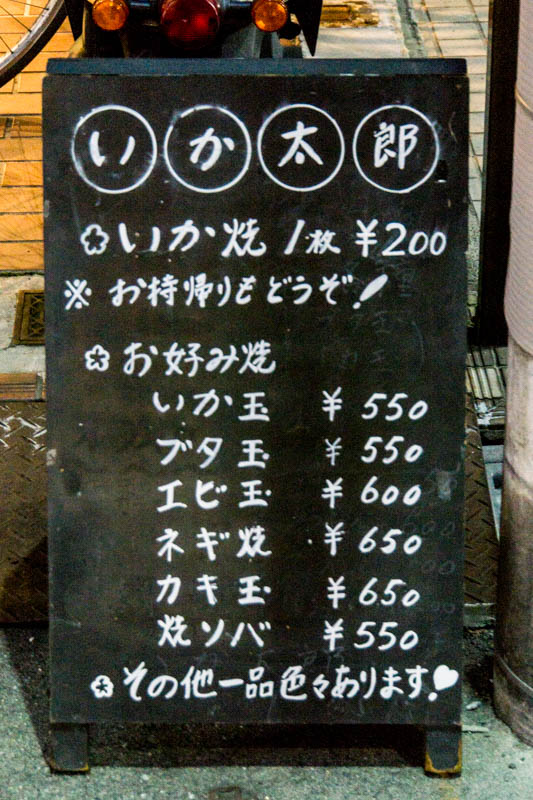 いか太郎
いか焼 1枚 ¥200
※ お持帰りもどうぞ!
お好み焼
いか玉 ¥550
ブタ玉 ¥550
エビ玉 ¥600
ネギ焼 ¥650
カキ玉 ¥650
焼ソバ ¥550
その他一品色々あります。♥